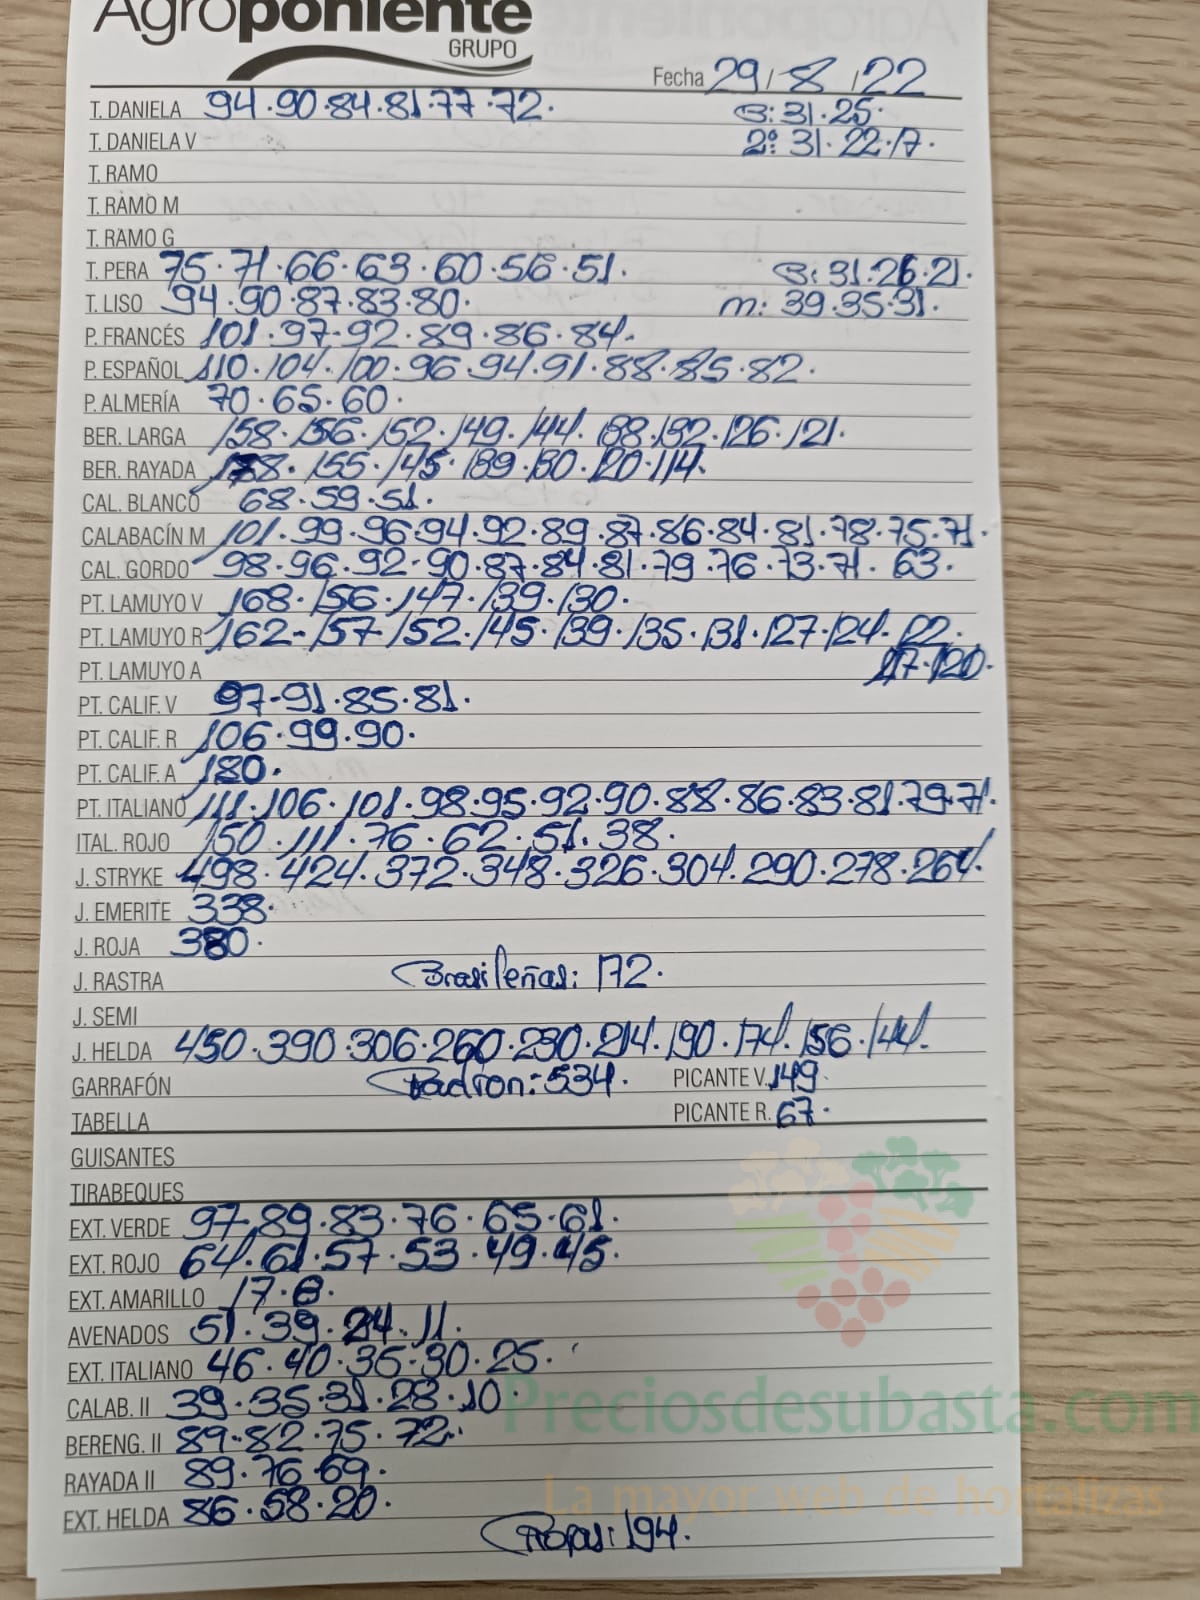 Agroponiente
GRUPO
Fecha 29/8/22
T. DANIELA 94.90.84.81.77.72. G:31.25.
T. DANIELA V 2º:31.22.17.
T. RAMO
T. RAMO M
T. RAMO G
T. PERA 75.71.66.63.60.56.51. G:31.26.21.
T. LISO 94.90.87.83.80. m:39.35.31.
P. FRANCÉS 101.97-92.89.86.84-
P. ESPAÑOL 110.104.100.96.94.91.88.85.82.
P. ALMERÍA 70.65.60.
BER. LARGA 158.156.152.149.144.138.132.126.121.
BER. RAYADA 155.145.139.130.120.114.
CAL. BLANCO 68.59.51.
CALABACÍN M 101.99.96.94.92.89.87.86.84.81.78.75.71.
CAL. GORDO 98.96.92.90.87.84.81.79.76.73.71.63.
PT. LAMUYO V 168.156.147.139.130.
PT. LAMUYO R 162-157-152.145.139.135.131.127.124.122.
PT. LAMUYO A 117.120.
PT. CALIF. V 97-91.85.81.
PT. CALIF. R 106.99.90.
PT. CALIF. A 180.
PT. ITALIANO 111.106.101.98.95.92.90.88.86.83.81.79.71.
ITAL. ROJO 150.111.76.62.51.38.
J. STRYKE 498.424.372.348.326.304.290.278.264.
J. EMERITE 338.
J. ROJA 380.
J. RASTRA Brasileñas: 172.
J. SEMI
J. HELDA 450.390.306.260.230.214.190.174.156.144.
GARRAFÓN Padron: 534. PICANTE V. 149
TABELLA PICANTE R. 67.
GUISANTES
TIRABEQUES
EXT. VERDE 97.89.83.76.65.61.
EXT. ROJO 64.61.57.53.49.45.
EXT. AMARILLO 17.8.
AVENADOS 51.39.24.11.
EXT. ITALIANO 46.40.35.30.25.
CALAB. II 39.35.31.28.10.
BERENG. II 89.82.75.72.
RAYADA II 89.76.69.
EXT. HELDA 86.58.20.
194.
Preciosdesubasta.com
La mayor web de hortalizas